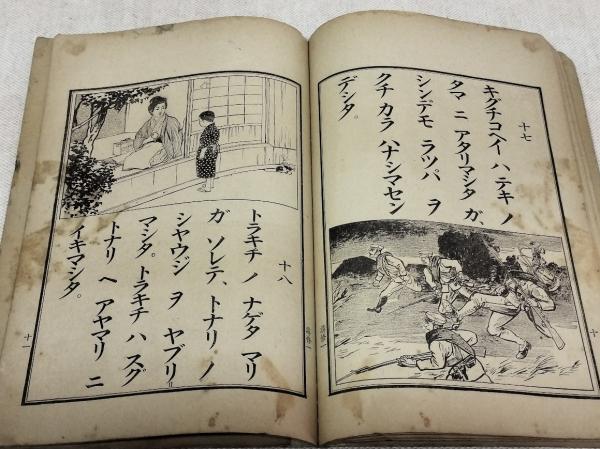 十七
キグチコヘイ ハ テキ ノ
タマ ニ アタリマシタ ガ、
シンデモ ラツパ ヲ
クチ カラ ハナシマセン
デシタ。
十八
トラキチ ノ ナゲタ マリ
ガ ソレテ、トナリ ノ
シヤウジ ヲ ヤブリ
マシタ。トラキチ ハ スグ
トナリ ヘ アヤマリ ニ
イキマシタ。
十一